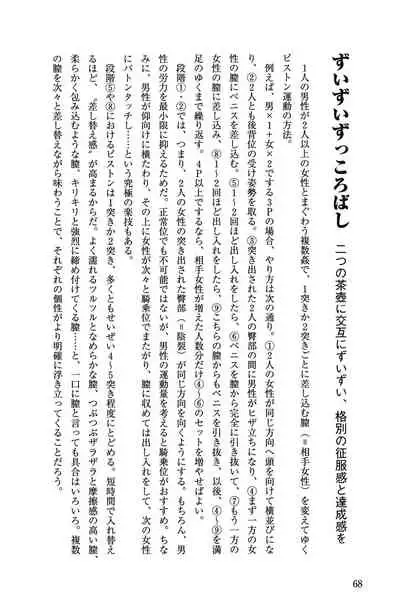 ずいずいずっころばし　二つの茶壺に交互にずいずい、格別の征服感と達成感を
１人の男性が２人以上の女性とまぐわう複数姦で、１突きか２突きごとに差し込む膣（＝相手女性）を変えてゆく
ピストン運動の方法。
例えば、男×１＋女×２でする３Ｐの場合、やり方は次の通り。①２人の女性が同じ方向へ頭を向けて横並びにな
り、②２人とも後背位の受け姿勢を取る。③突き出された２人の臀部の間に男性がヒザ立ちになり、④まず一方の女
性の膣にペニスを差し込む。⑤１〜２回ほど出し入れをしたら、⑥ペニスを膣から完全に引き抜いて、⑦もう一方の
女性の膣に差し込み、⑧１〜２回ほど出し入れをしたら、⑨こちらの膣からもペニスを引き抜き、以後、④〜⑨を満
足のゆくまで繰り返す。４Ｐ以上でするなら、相手女性が増えた人数分だけ④〜⑥のセットを増やせばよい。
段階①・②では、つまり、２人の女性の突き出された臀部（＝陰裂）が同じ方向を向くようにする。もちろん、男
性の労力を最小限に抑えるためだ。正常位でも不可能ではないが、男性の運動量を考えると騎乗位がおすすめ。ちな
みに、男性が仰向けに横たわり、その上に女性が次々と騎乗位でまたがり、膣に収めては出し入れをして、次の女性
にバトンタッチし……という究極の楽技もある。
段階⑤や⑧におけるピストンは１突きか２突き、多くともせいぜい４〜５突き程度にとどめる。短時間で入れ替え
るほど、“差し替え感”が高まるからだ。よく濡れるツルツルとなめらかな膣、つぶつぶザラザラと摩擦感の高い膣、
柔らかく包み込むような膣、キリキリと強烈に締め付けてくる膣……と、一口に膣と言っても具合はいろいろ。複数
の膣を次々と差し替えながら味わうことで、それぞれの個性がより明確に浮き立ってくることだろう。
68